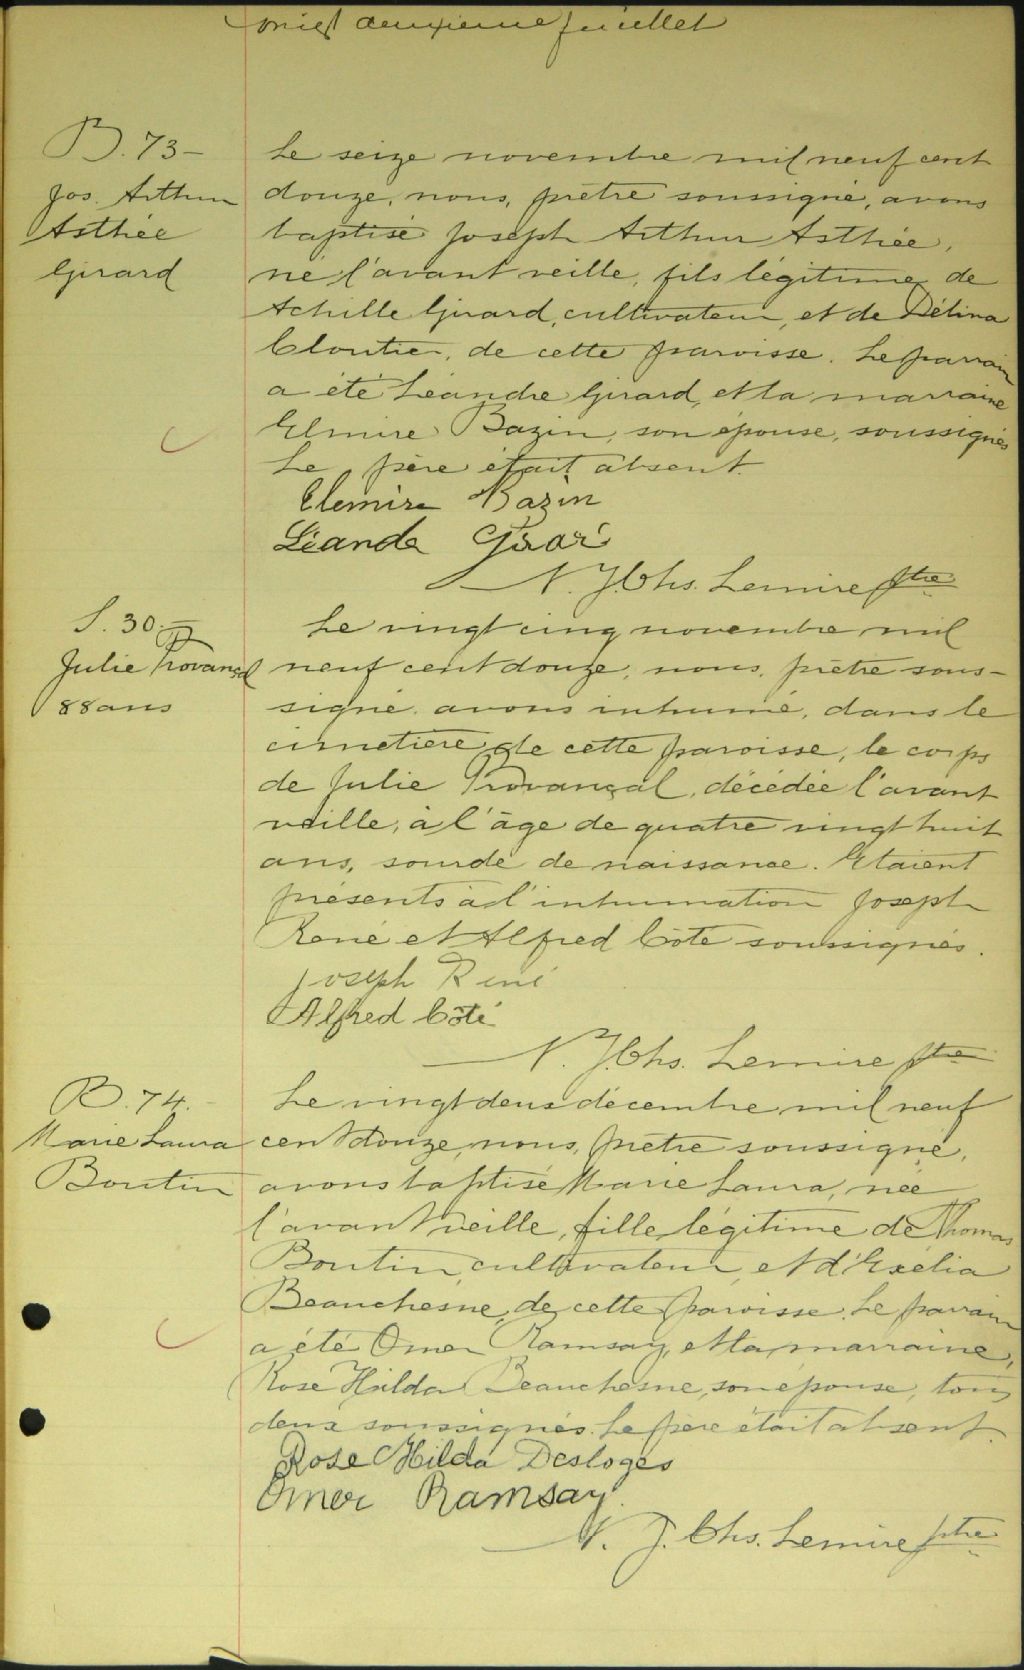 vingt deuxième feuillet
B. 73 —
Jos. Arthur
Asthée
Girard
Le seize novembre mil neuf cent
douze, nous, prêtre soussigné, avons
baptisé Joseph Arthur Asthée,
né l'avant veille, fils légitime de
Achille Girard, cultivateur, et de Délina
Cloutier, de cette paroisse. Le parrain
a été Léandre Girard, et la marraine
Elmire Bazin, son épouse, soussignés
Le père était absent.
Elemire Bazin
Léanda Girar
N. J. Chs. Lemire ptre
S. 30. —
Julie Provançal
88 ans
Le vingt cinq novembre mil
neuf cent douze, nous, prêtre sous-
signé, avons inhumé, dans le
cimetière de cette paroisse, le corps
de Julie Provançal, décédée l'avant
veille, à l'âge de quatre vingt huit
ans, sourde de naissance. Etaient
présents à l'inhumation Joseph
René et Alfred Côté soussignés.
Joseph René
Alfred Côté
N. J. Chs. Lemire ptre
B. 74. —
Marie Laura
Boutin
Le vingt deux décembre mil neuf
cent douze, nous, prêtre soussigné,
avons baptisé Marie Laura, née
l'avant veille, fille légitime de Thomas
Boutin, cultivateur, et d'Exélia
Beauchesne, de cette paroisse. Le parrain
a été Omer Ramsay, et la marraine,
Rose Hilda Beauchesne, son épouse, tous
deux soussignés. Le père était absent.
Rose Hilda Desloges
Omer Ramsay.
N. J. Chs. Lemire ptre